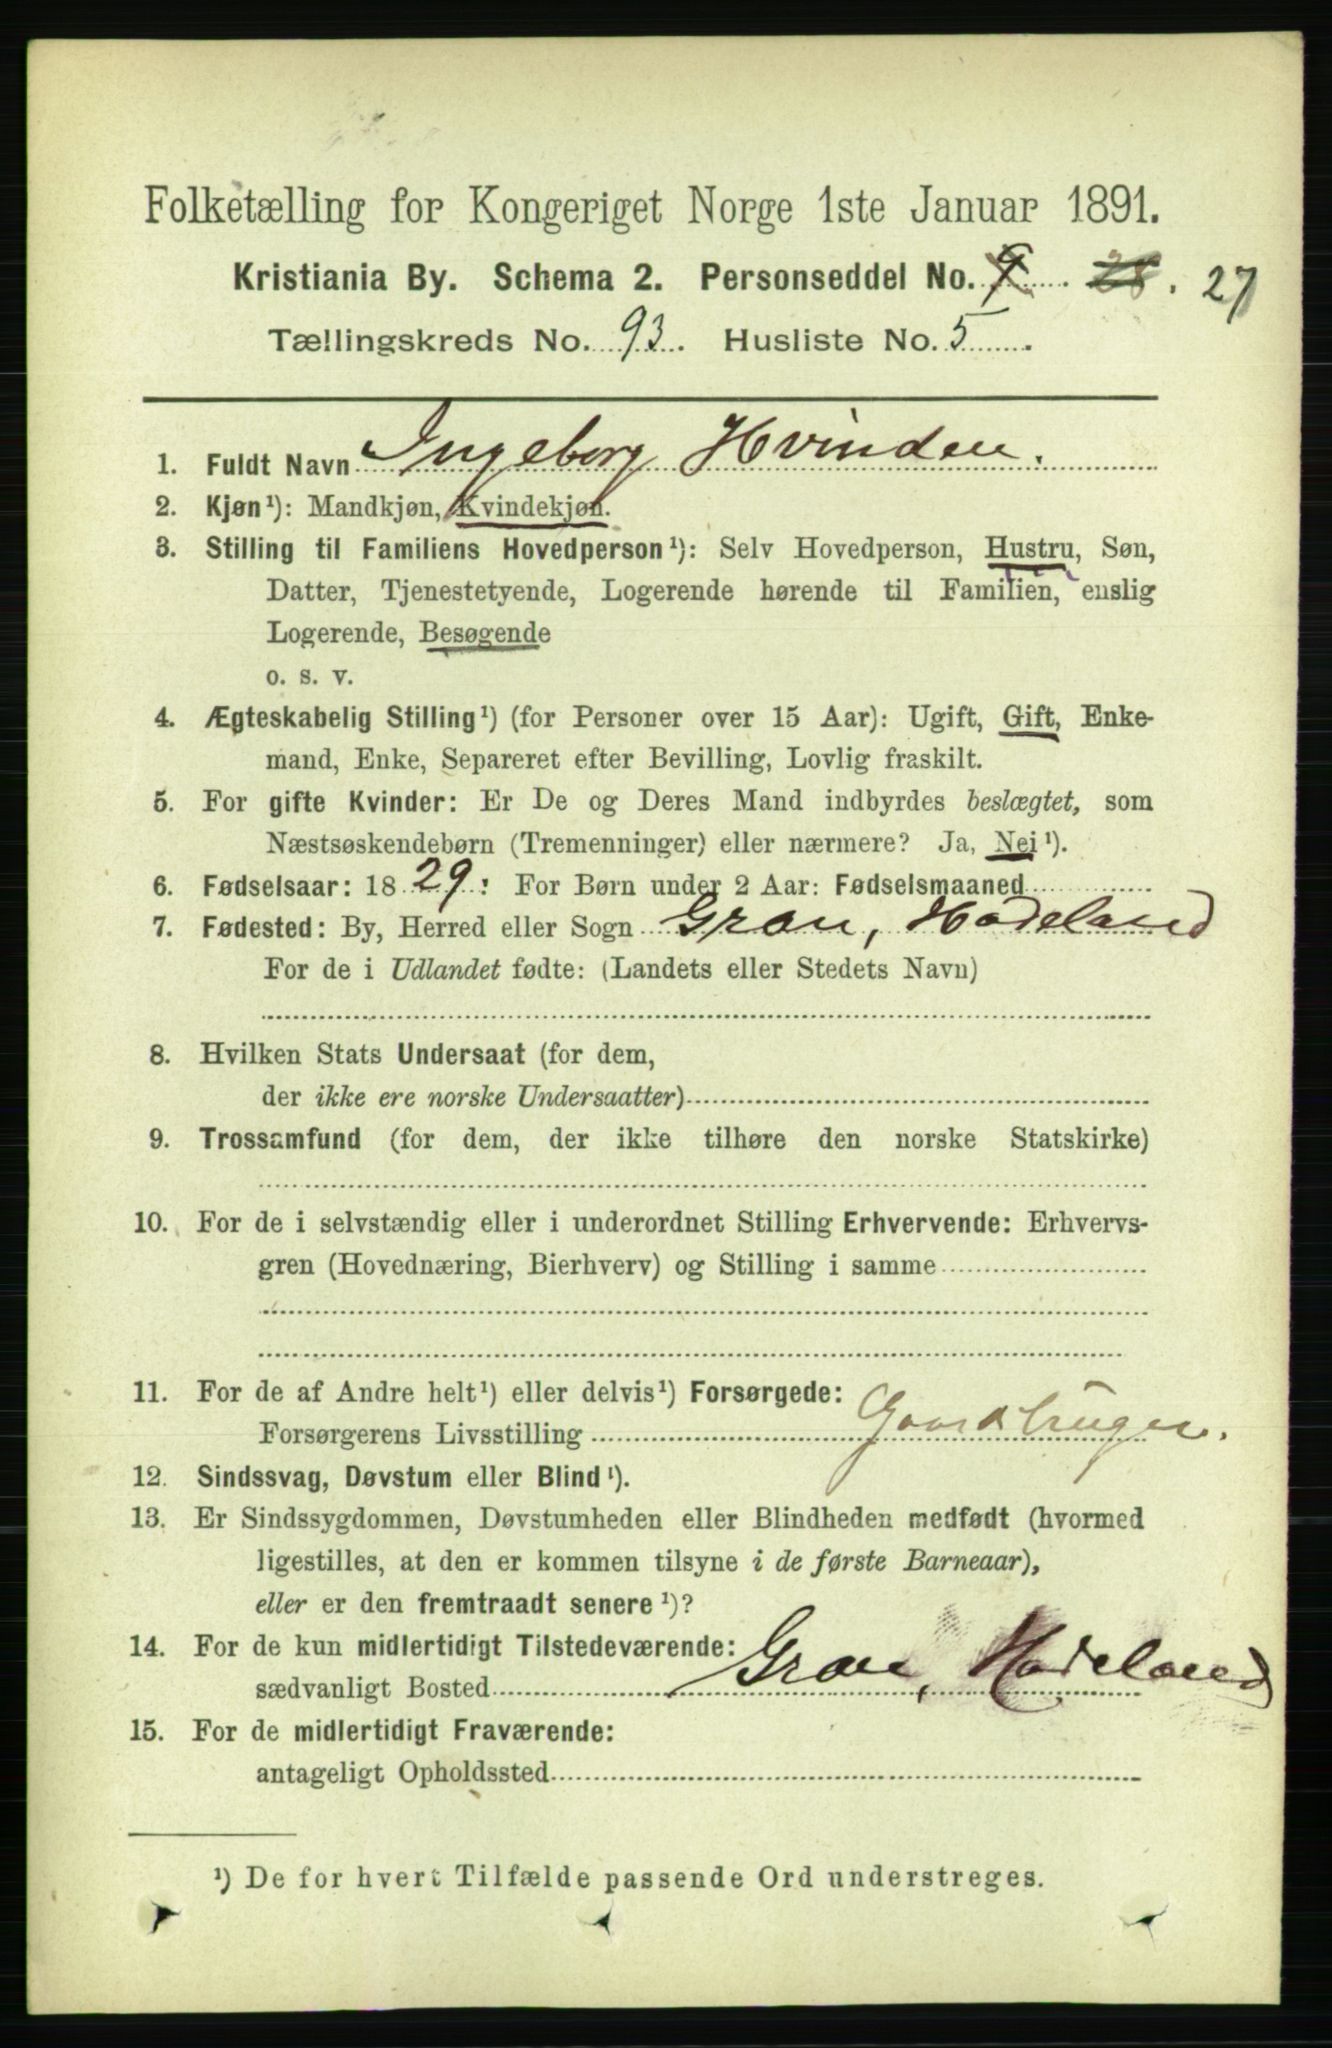 Folketælling for Kongeriget Norge 1ste Januar 1891.
Kristiania By. Schema 2. Personseddel No. 9. 28. 27
Tællingskreds No. 93. Husliste No. 5.
1. Fuldt Navn Ingeborg Hvinden.
2. Kjøn¹): Mandkjøn, Kvindekjøn.
3. Stilling til Familiens Hovedperson¹): Selv Hovedperson, Hustru, Søn,
Datter, Tjenestetyende, Logerende hørende til Familien, enslig
Logerende, Besøgende
o. s. v.
4. Ægteskabelig Stilling¹) (for Personer over 15 Aar): Ugift, Gift, Enke-
mand, Enke, Separeret efter Bevilling, Lovlig fraskilt.
5. For gifte Kvinder: Er De og Deres Mand indbyrdes beslægtet, som
Næstsøskendebørn (Tremenninger) eller nærmere? Ja, Nei¹).
6. Fødselsaar: 1829: For Børn under 2 Aar: Fødselsmaaned
7. Fødested: By, Herred eller Sogn Gran, Hadeland
For de i Udlandet fødte: (Landets eller Stedets Navn)
8. Hvilken Stats Undersaat (for dem,
der ikke ere norske Undersaatter)
9. Trossamfund (for dem, der ikke tilhøre den norske Statskirke)
10. For de i selvstændig eller i underordnet Stilling Erhvervende: Erhvervs-
gren (Hovednæring, Bierhverv) og Stilling i samme
11. For de af Andre helt¹) eller delvis¹) Forsørgede:
Forsørgerens Livsstilling Gaardbruger.
12. Sindssvag, Døvstum eller Blind¹).
13. Er Sindssygdommen, Døvstumheden eller Blindheden medfødt (hvormed
ligestilles, at den er kommen tilsyne i de første Barneaar),
eller er den fremtraadt senere¹)?
14. For de kun midlertidigt Tilstedeværende:
sædvanligt Bosted Gran, Hadeland
15. For de midlertidigt Fraværende:
antageligt Opholdssted
¹) De for hvert Tilfælde passende Ord understreges.